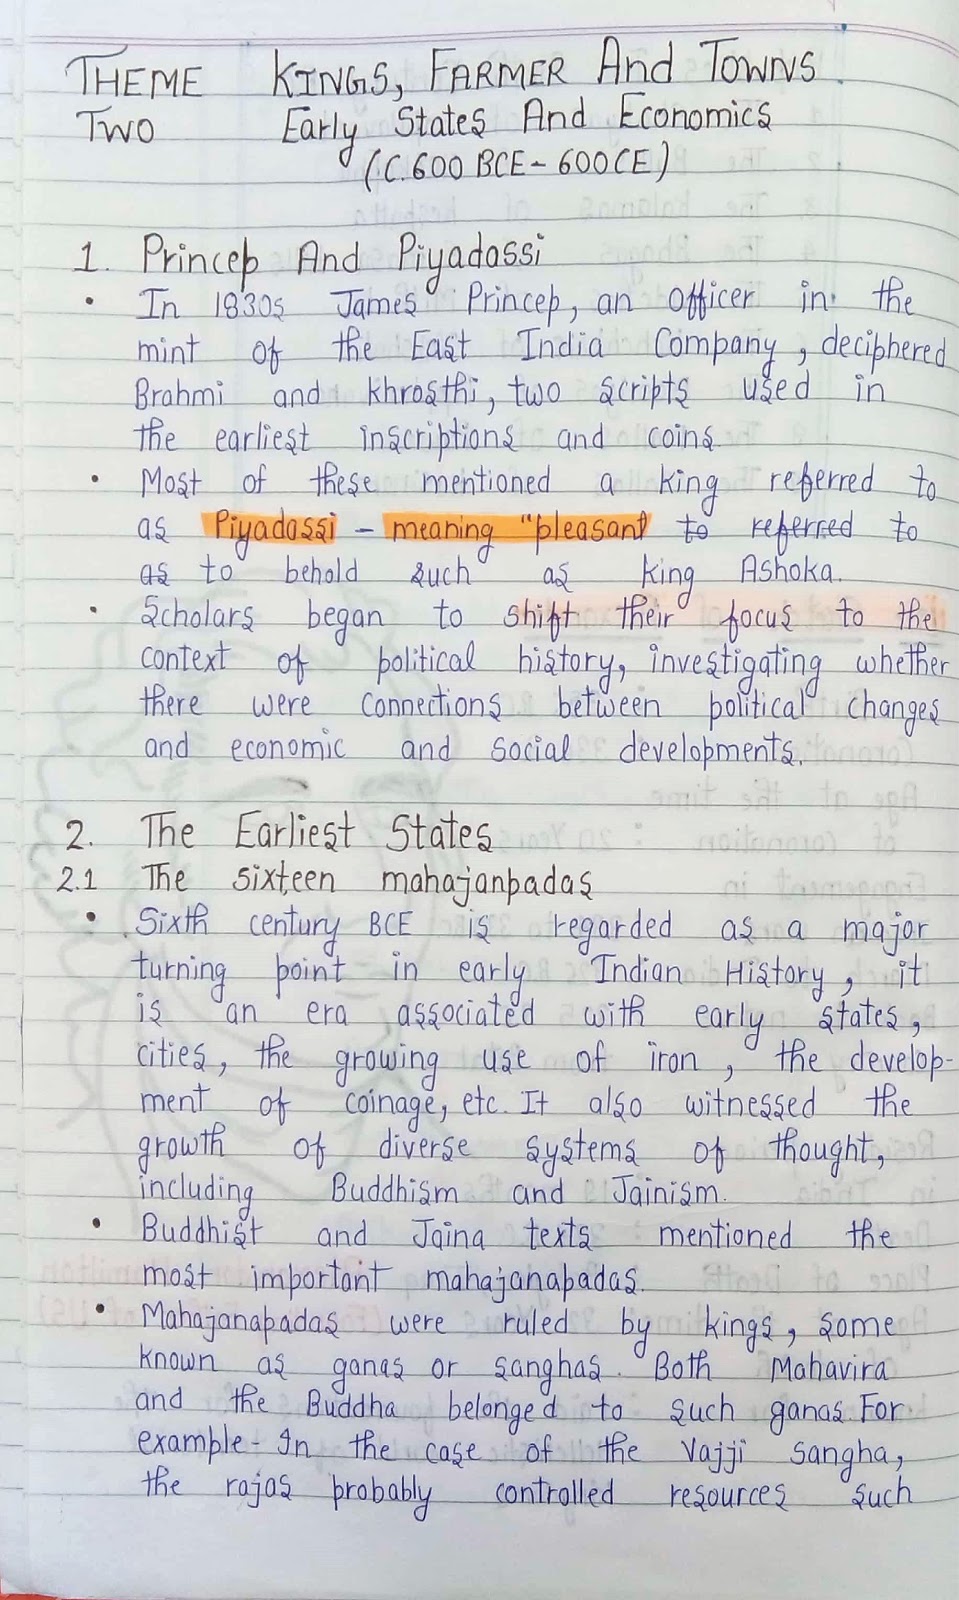 THEME KINGS, FARMER And TOWNS
TWO Early States And Economics
(C.600 BCE - 600CE)
1. Princep And Piyadassi
• In 1830s James Princep, an officer in the
mint of the East India Company, deciphered
Brahmi and Khrosthi, two scripts used in
the earliest inscriptions and coins.
• Most of these mentioned a king referred to
as Piyadassi - meaning "pleasant to referred to
as to behold such as king Ashoka.
• Scholars began to shift their focus to the
context of political history, investigating whether
there were connections between political changes
and economic and social developments.
2. The Earliest States
2.1 The sixteen mahajanpadas
• Sixth century BCE is regarded as a major
turning point in early Indian History, it
is an era associated with early states,
cities, the growing use of iron, the develop-
ment of coinage, etc. It also witnessed the
growth of diverse systems of thought,
including Buddhism and Jainism.
• Buddhist and Jaina texts mentioned the
most important mahajanapadas.
• Mahajanapadas were ruled by kings, some
known as ganas or sanghas. Both Mahavira
and the Buddha belonged to such ganas. For
example - In the case of the Vajji sangha,
the rajas probably controlled resources such